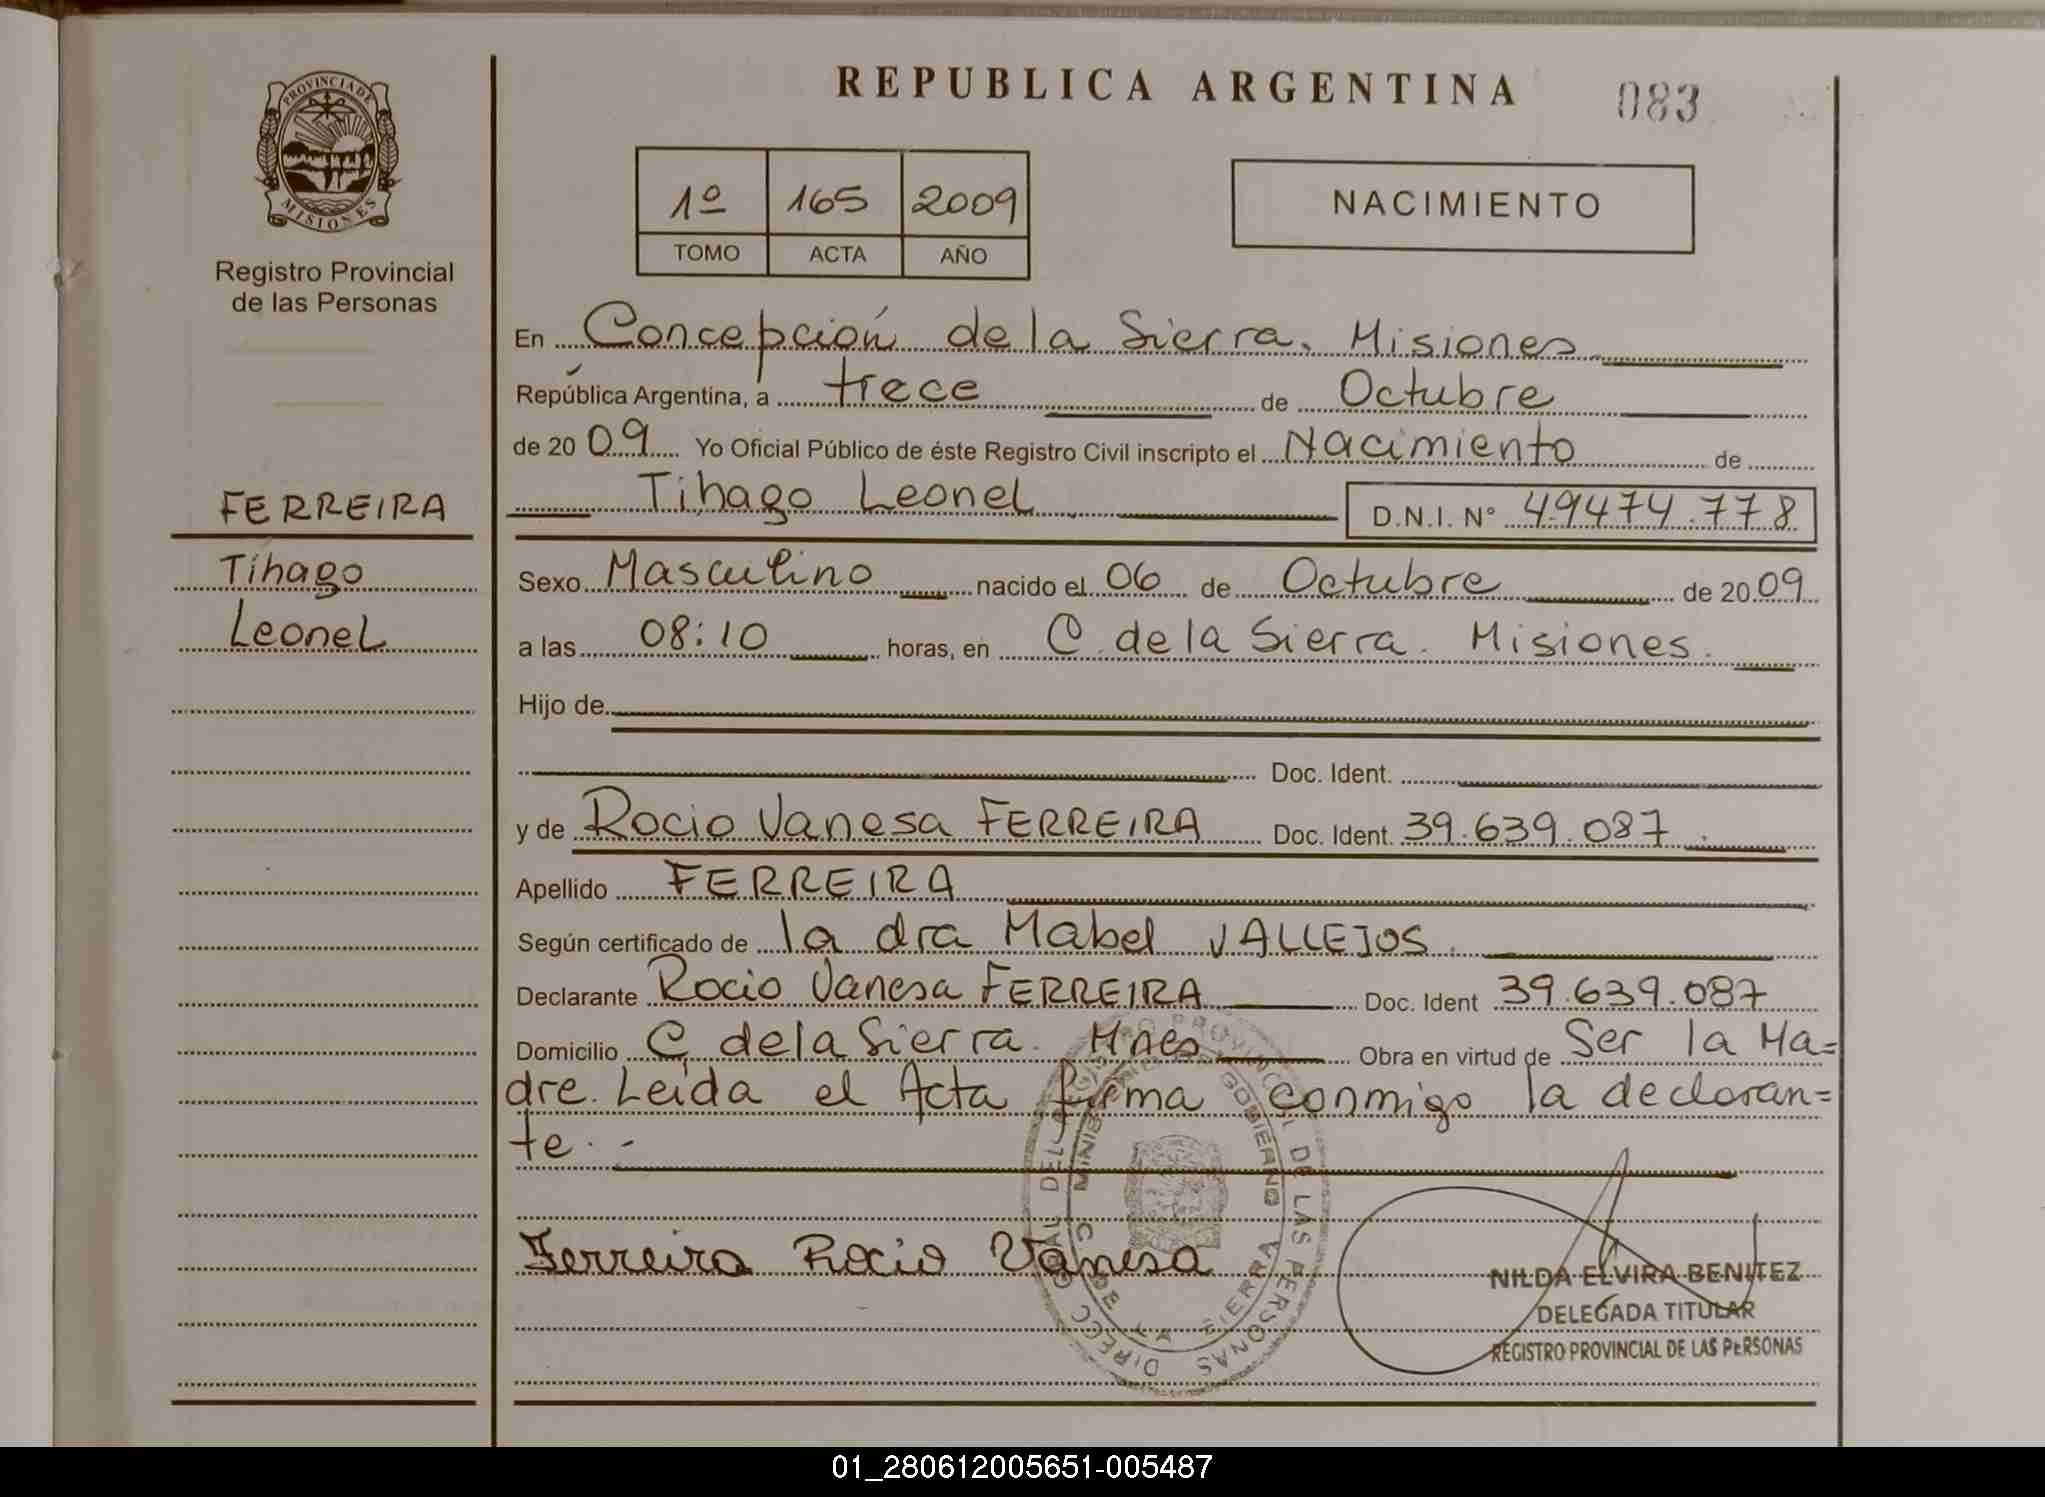 REPUBLICA ARGENTINA
083
PROVINCIA DE
MISIONES
Registro Provincial
de las Personas
1º 165 2009
TOMO ACTA AÑO
NACIMIENTO
En Concepción de la Sierra. Misiones
República Argentina, a trece de Octubre
de 2009 Yo Oficial Público de éste Registro Civil inscripto el Nacimiento de
FERREIRA
Tihago
Leonel
Tihago Leonel D.N.I. N° 49474.778
Sexo Masculino nacido el 06 de Octubre de 2009
a las 08:10 horas, en C. de la Sierra. Misiones.
Hijo de
Doc. Ident.
y de Rocio Vanesa FERREIRA Doc. Ident. 39.639.087
Apellido FERREIRA
Según certificado de la dra Mabel VALLEJOS.
Declarante Rocio Vanesa FERREIRA Doc. Ident 39.639.087
Domicilio C de la Sierra. Mnes Obra en virtud de Ser la Ma=
dre. Leída el Acta firma conmigo la declaran=
te.-
Ferreira Rocio Vanesa
NILDA ELVIRA BENITEZ
DELEGADA TITULAR
REGISTRO PROVINCIAL DE LAS PERSONAS
DIRECC GRAL DEL REGISTRO PROVINCIAL DE LAS PERSONAS
MINISTERIO DE GOBIERNO
C DE LA SIERRA
01_280612005651-005487